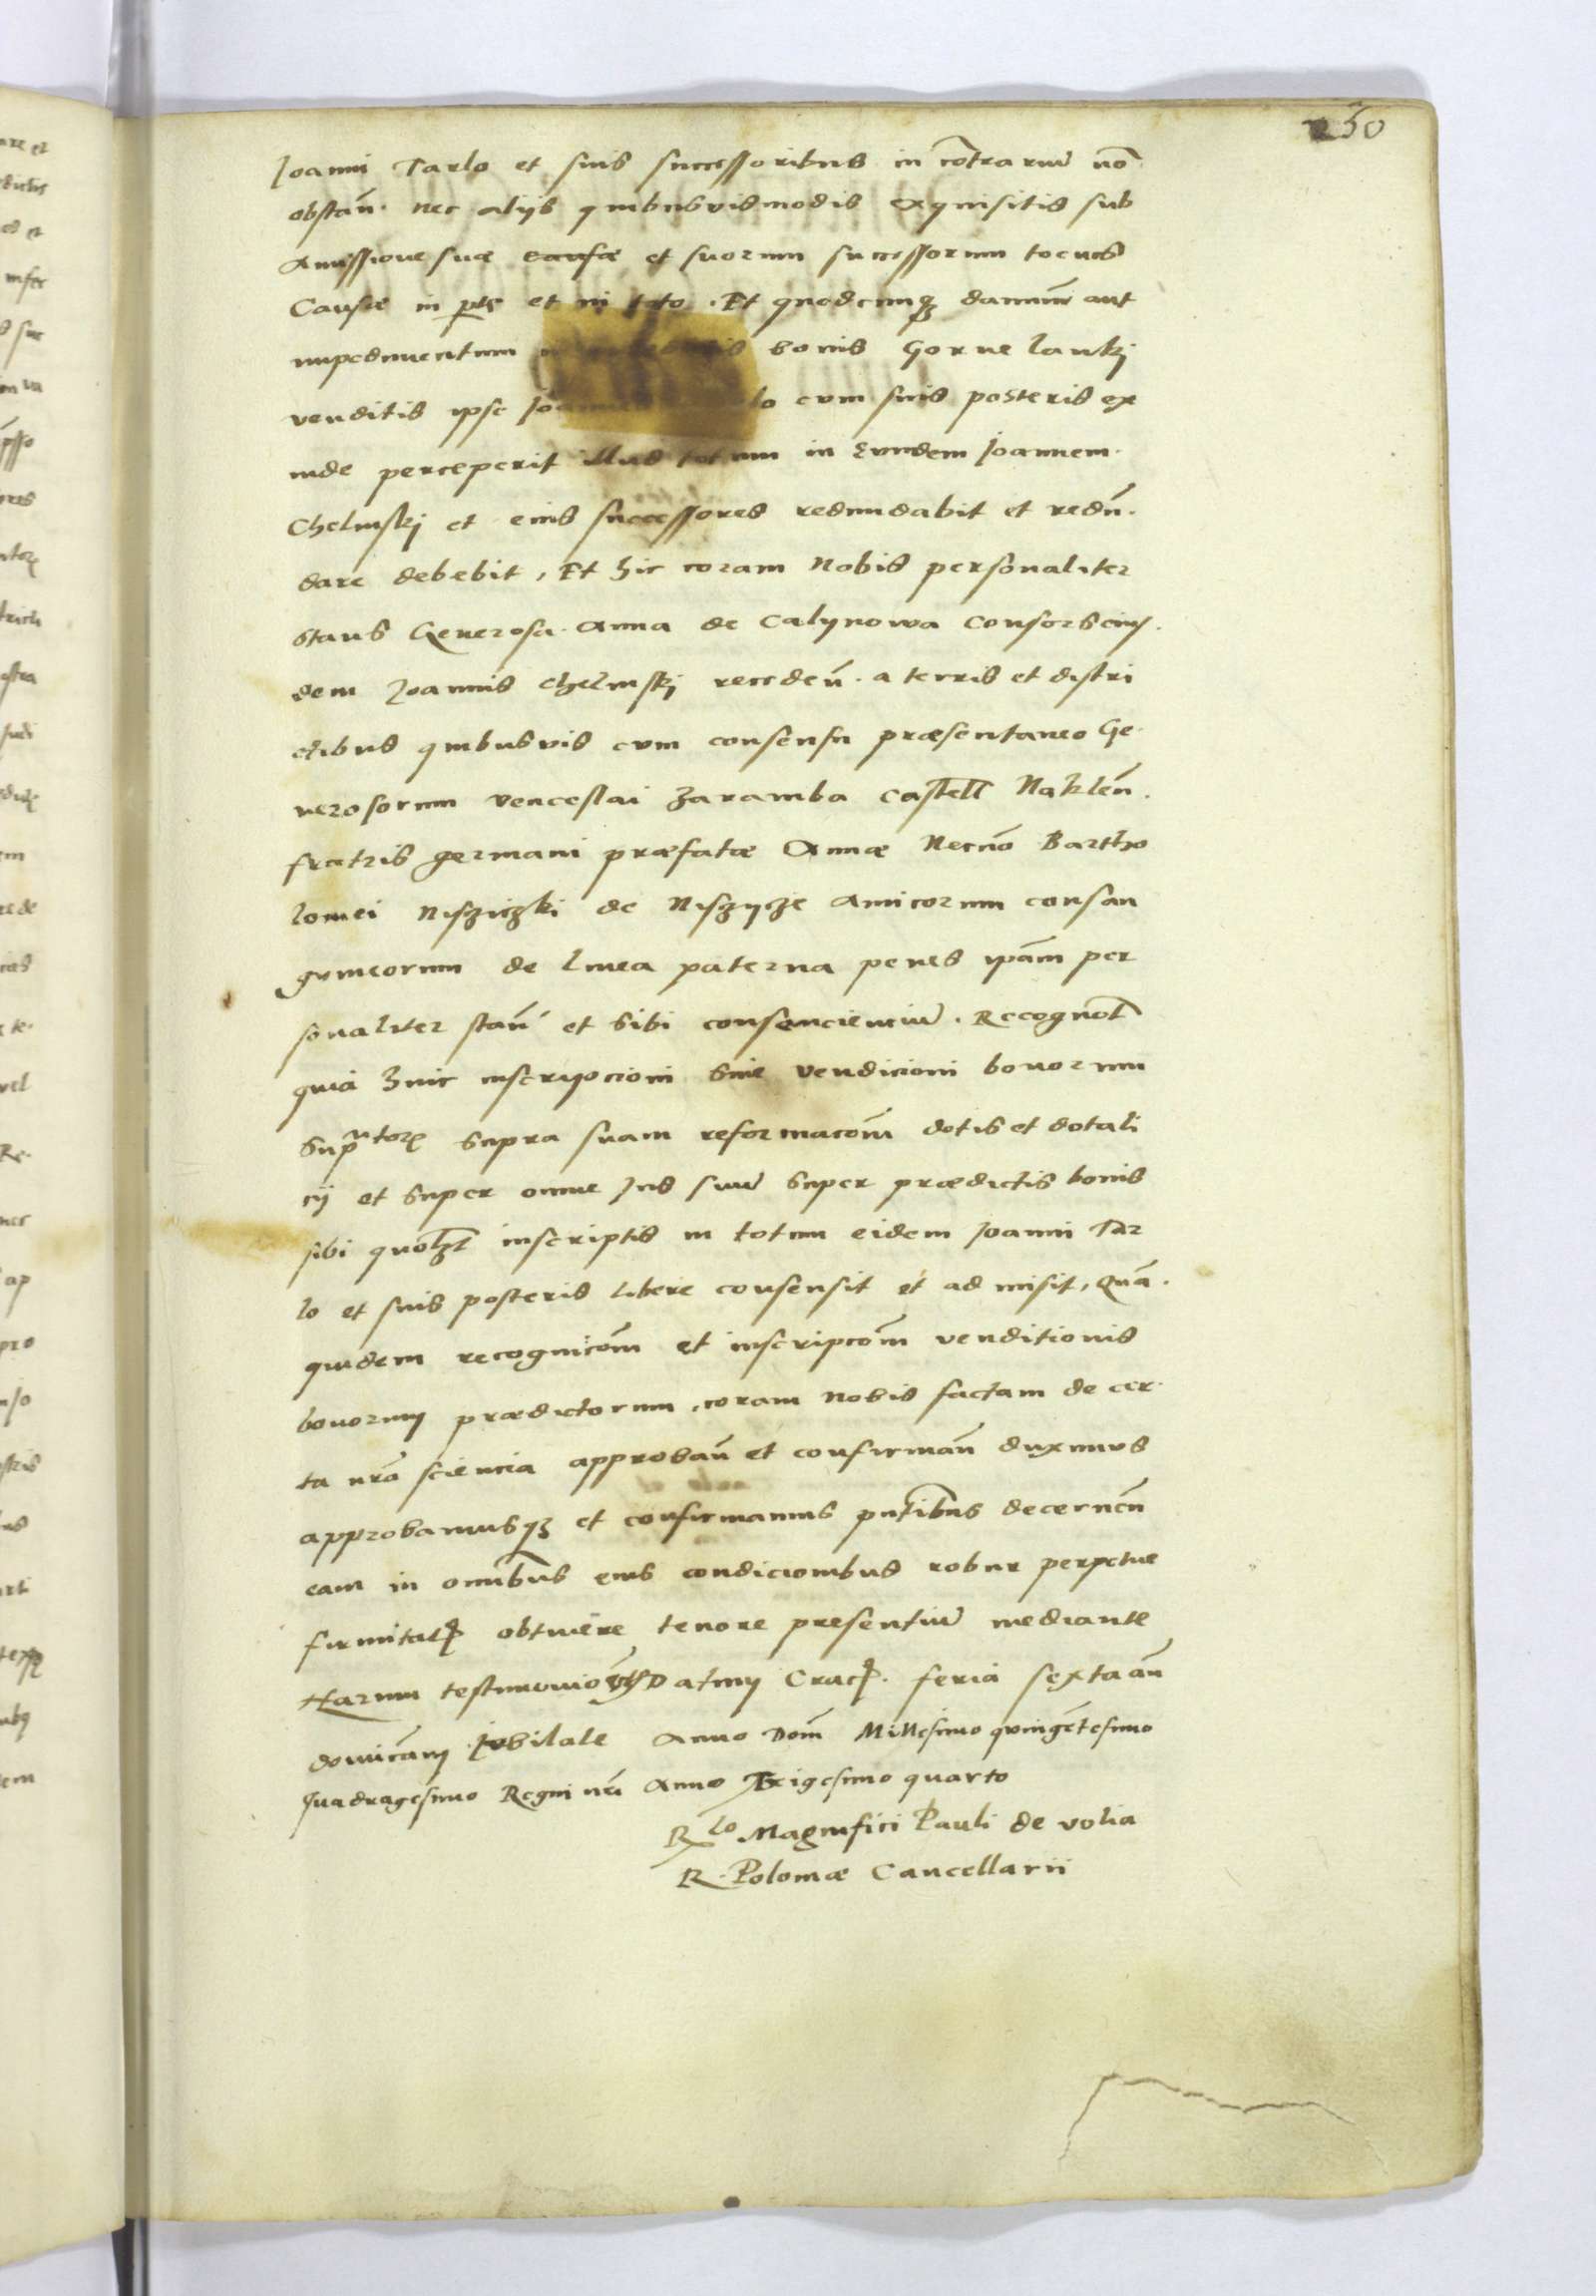 250
Joanni Tarlo et suis successoribus in cōtrariū nō
obstañ. nec alijs quibusvismodis exquisitis sub
Amissione suæ causæ et suorum successorum tocius
Causæ in pte et in toto. Et quodcunqʒ damnū aut
impedimentum bonis Gorne lanki
venditis ipse lo cum suis posteris ex
inde perceperit illud totum in Eundem Joannem.
Chelmskj et eius successores redundabit et reduñ.
dare debebit, Et hic coram Nobis personaliter
stans Generosa Anna de Calynowa Consors eius.
dem Joannis chelmskj recedeñ. a terris et distri
ctibus quibusvis cum consensu præsentaneo Ge.
nerosorum venceslai Zaramba Castell Nakleñ.
fratris germani præfatæ Annæ Necnō Bartho
lomei Nisziczki de Niszycze Amicorum consan
gvineorum de linea paterna penes ipām per
sonaliter stañ et sibi consencienciū. Recognoīt
quia huic inscripcioni sive vendicioni bonorum
supratorꝝ supra suam reformacōm dotis et dotali
cij et super omne Jus suū super prædictis bonis
sibi quolʒt inscriptis in totum eidem Joanni Tar
lo et suis posteris libere consensit et ad misit, Quā.
quidem recognicōm et inscripcōm venditionis
bonorum prædictorum, coram nobis factam de cer.
ta nrā sciencia approbañ et confirmañ duximus
approbamusqʒ et confirmamus pntibus decerneñ
eam in omnibus eius condicionibus robur perpetue
firmitatꝭ obtinēre tenore presentiū mediante
Harum testimonio Datum Cracꝭ. feria sexta añ
dominicam Jubilate Anno Domi Millesimo quingētesimo
Quadragesimo Regni nrī Anno Trigesimo quarto
Rlo Magnifici Pauli de volia
R. Poloniæ Cancellarii